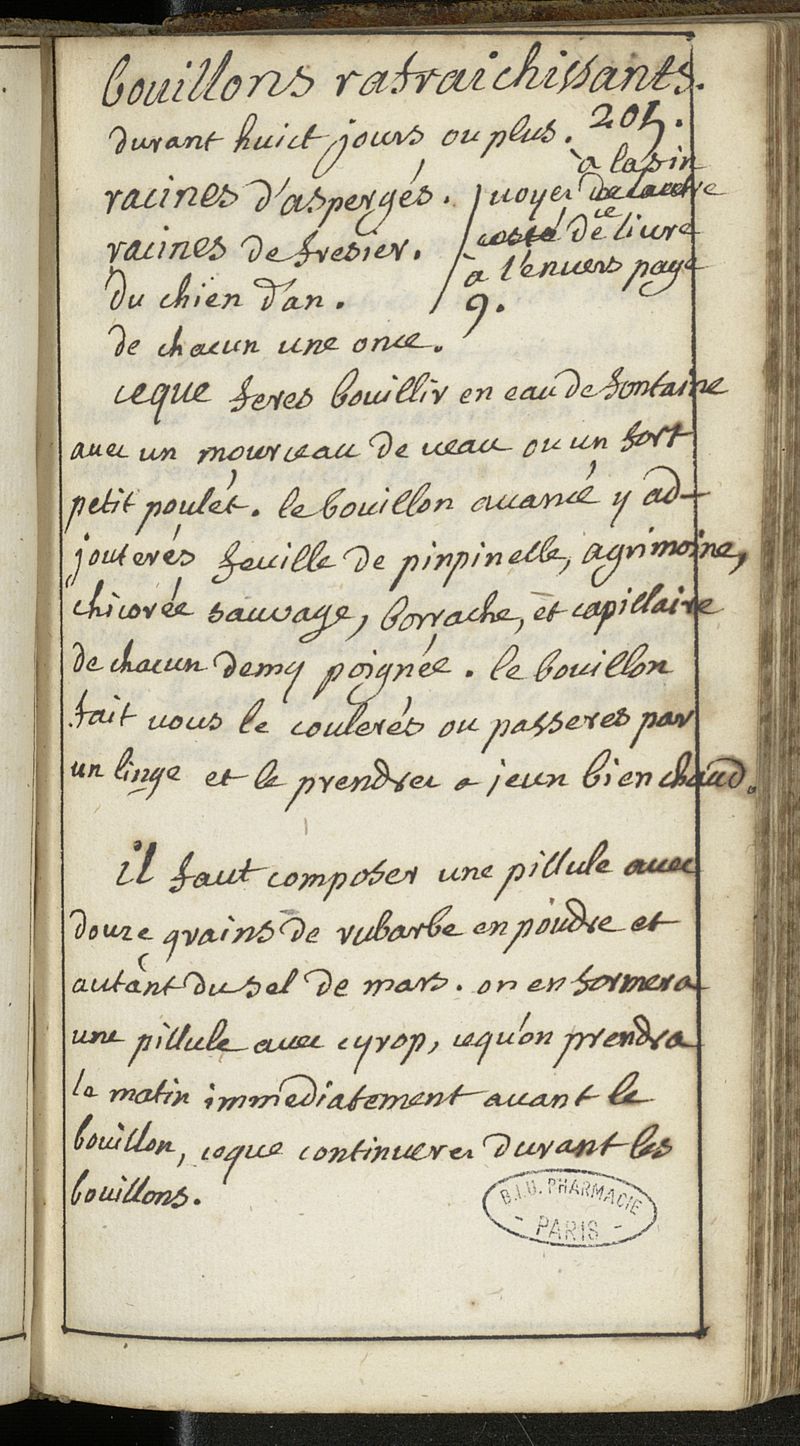 bouillons rafraichissants.
durant huict jours ou plus. 201.
racines d'aspergés.
racines de fresier.
du chien d'an.
de chacun une once.
à la fin
voyez
de ce livre
à l'envers page
9.
ceque feres bouillir en eau de fontaine
avec un mourceau de veau ou un fort
petit poulét. le bouillon avancé y ad-
jouterés feuille de pinpinelle, agrimoine,
chicorée sauvage, borrache, et capillaire
de chacun demy poignée. le bouillon
fait vous le coulerés ou passeres par
un linge et le prendrez a jeun bien chaud.
il faut composer une pillule avec
douze grains de rubarbe en poudre et
autant du sel de mars. on en formera
une pillule avec cyrop, cequ'on prendra
le matin immediatement avant le
bouillon, ceque continuerez durant les
bouillons.
B.I.U. PHARMACIE
- PARIS -